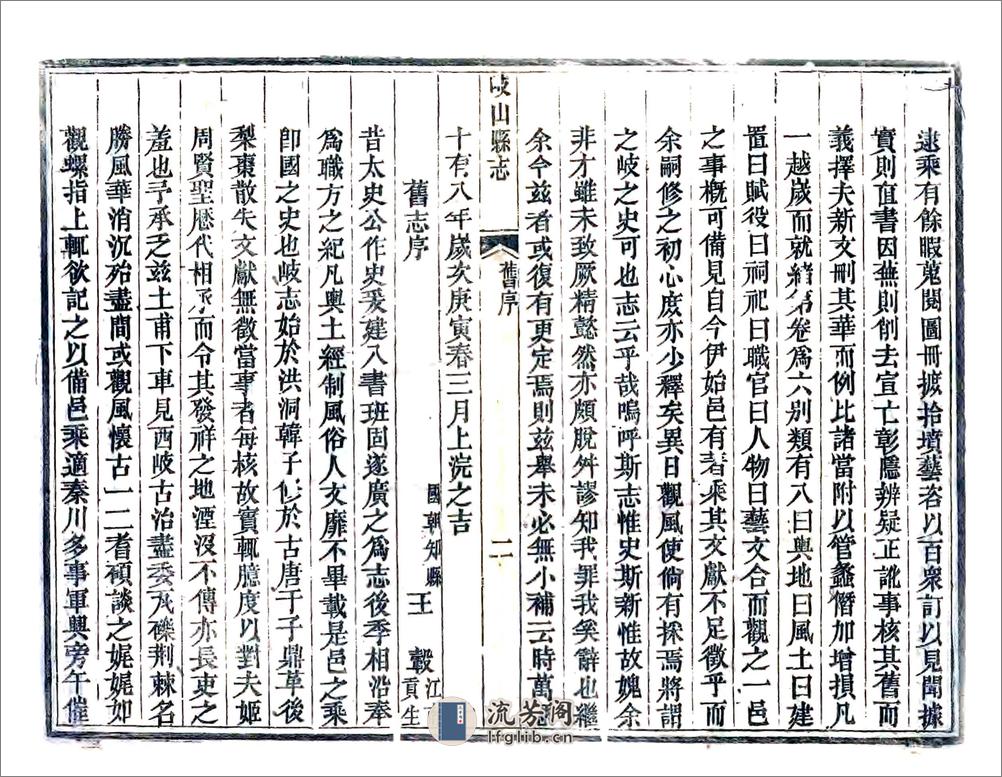 遠乘有餘暇蒐閱圖冊摭拾墳藝咨以百衆訂以見聞據
實則直書因蕪則削去宣亡彰隱辨疑正訛事核其舊而
義擇夫新文刪其華而例比諸當附以管蠡僭加增損凡
一越歲而就緒第卷爲六別類有八曰輿地曰風土曰建
置曰賦役曰祠祀曰職官曰人物曰藝文合而觀之一邑
之事概可備見自今伊始邑有耆乘其文獻不足徵乎而
余嗣修之初心庶亦少釋矣異日觀風使倘有採焉將謂
之岐之史可也志云乎哉嗚呼斯志惟史斯新惟故媿余
非才雖未致厥精懿然亦頗脫舛謬知我罪我奚辭也繼
余今茲者或復有更定焉則茲舉未必無小補云時萬
十有八年歲次庚寅春三月上浣之吉
岐山縣志
舊序
二
舊志序
國朝知縣王轂江
貢生
昔太史公作史爰建八書班固遂廣之爲志後季相沿奉
爲職方之紀凡輿土經制風俗人文靡不畢載是邑之乘
卽國之史也岐志始於洪洞韓子修於古唐于子鼎革後
梨棗散失文獻無徵當事者每核故實輒臆度以對夫姬
周賢聖歷代相承而令其發祥之地湮沒不傳亦長吏之
羞也予承乏茲土甫下車見西岐古治盡委瓦礫荆棘名
勝風華消沉殆盡間或觀風懷古一二耆碩談之娓娓如
觀螺指上輒欲記之以備邑乘適秦川多事軍興旁午催
流芳阁
lfglib.cn